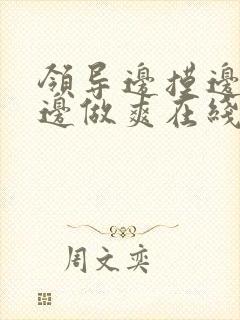 領导邊摸邊
邊做爽在綫
周文奕